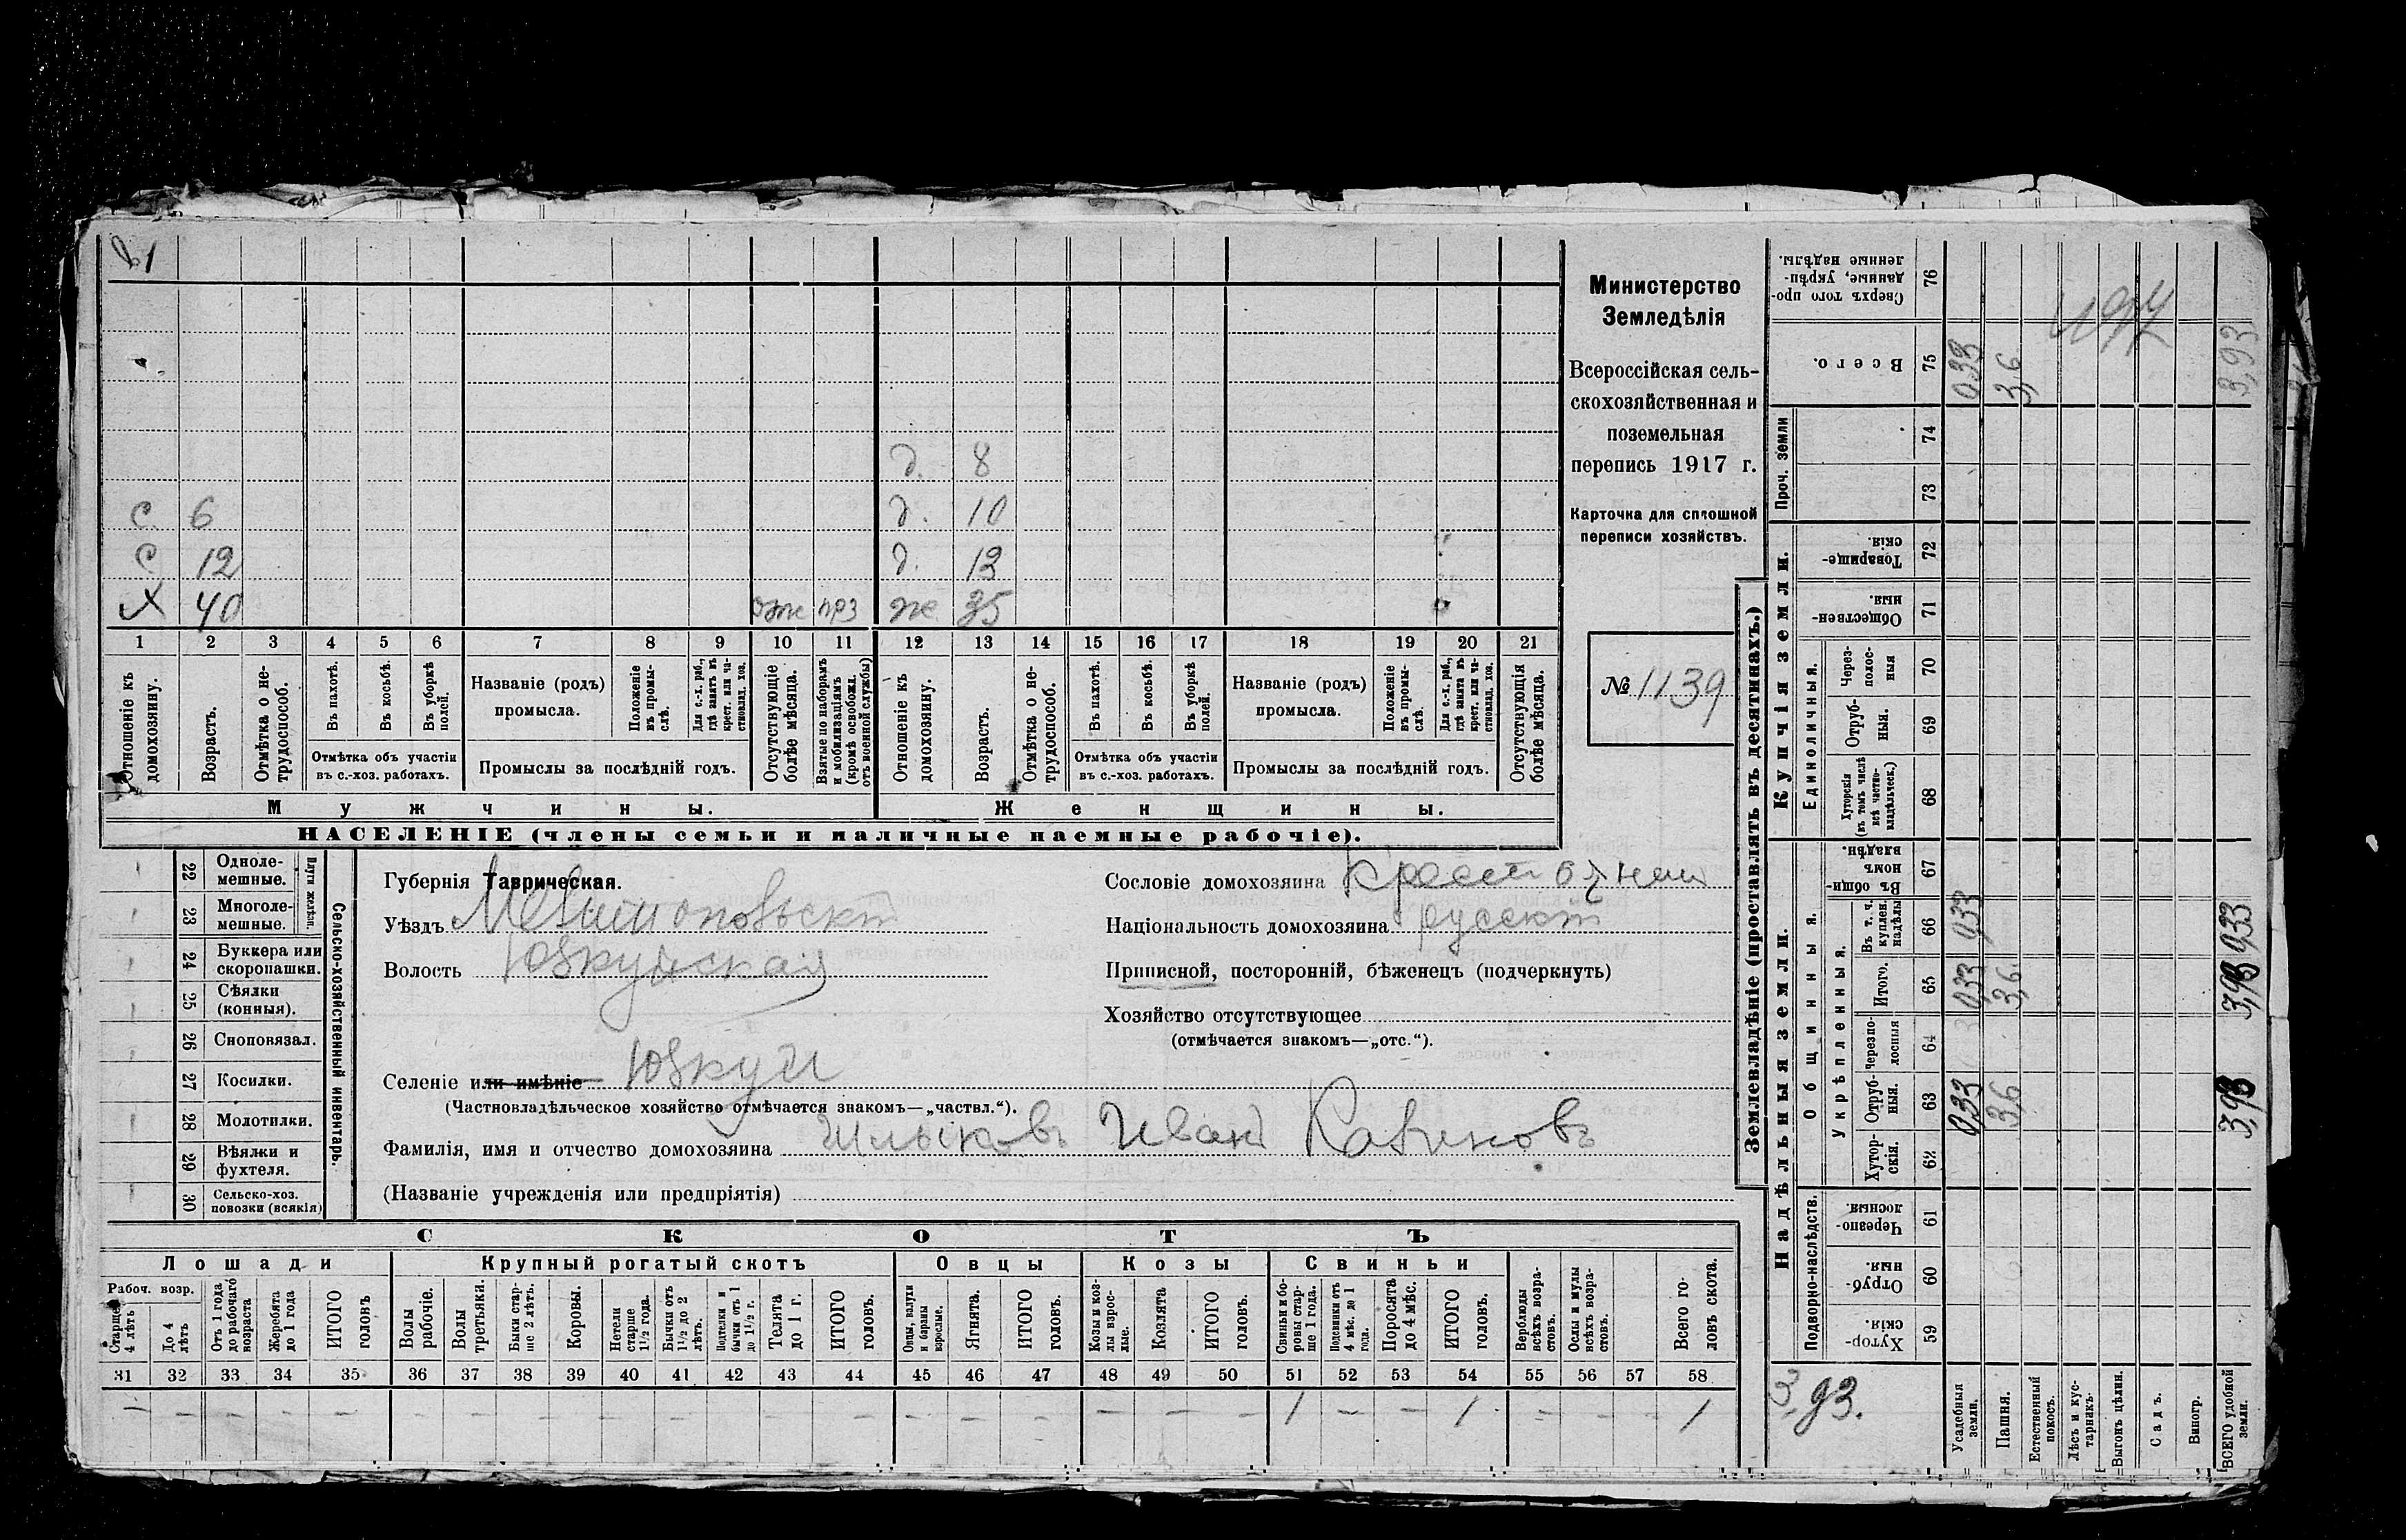 Министерство
Земледѣлія
Всероссійская сель-
скохозяйственная и
поземельная
перепись 1917 г.
Карточка для сплошной
переписи хозяйствъ.
№ 1139
д. 8
с 6 д. 10
с 12 д. 13
Х 40 отж ж 35
1 2 3 4 5 6 7 8 9 10 11 12 13 14 15 16 17 18 19 20 21
Отношеніе къ домохозяину.
Возрастъ.
Отмѣтка о не-
трудоспособ.
Въ пахотѣ.
Въ косьбѣ.
Въ уборкѣ полей.
Отмѣтка объ участіи
въ с.-хоз. работахъ.
Названіе (родъ)
промысла.
Положеніе въ промы-
слѣ.
Для с.-х. раб., гдѣ занятъ въ крест. или ча-
стновлад. хоз.
Промыслы за послѣдній годъ.
Отсутствующіе болѣе мѣсяца.
Взятые по наборамъ и мобилизаціямъ (кромѣ освобожд. отъ военной службы)
Отношеніе къ домохозяину.
Возрастъ.
Отмѣтка о не-
трудоспособ.
Въ пахотѣ.
Въ косьбѣ.
Въ уборкѣ полей.
Отмѣтка объ участіи
въ с.-хоз. работахъ.
Названіе (родъ)
промысла.
Положеніе въ промы-
слѣ.
Для с.-х. раб., гдѣ занята въ крест. или ча-
стновлад. хоз.
Промыслы за послѣдній годъ.
Отсутствующія болѣе мѣсяца.
Мужчины.
Женщины.
НАСЕЛЕНІЕ (члены семьи и наличные наемные рабочіе).
Сельско-хозяйственный инвентарь.
Плуги желѣзн.
22 Одноле-
мешные.
23 Многоле-
мешные.
24 Буккера или
скоропашки.
25 Сѣялки
(конныя).
26 Сноповязал.
27 Косилки.
28 Молотилки.
29 Вѣялки и
фухтеля.
30 Сельско-хоз.
повозки (всякія)
Губернія Таврическая.
Уѣздъ
Волость Юзкуйская
Селеніе или имѣніе Юзкуи
(Частновладѣльческое хозяйство отмѣчается знакомъ—„частвл.“).
Фамилія, имя и отчество домохозяина Иван
(Названіе учрежденія или предпріятія)
Сословіе домохозяина
Національность домохозяина
Приписной, посторонній, бѣженецъ (подчеркнуть)
Хозяйство отсутствующее
(отмѣчается знакомъ—„отс.“).
СКОТЪ
Лошади
Крупный рогатый скотъ
Овцы
Козы
Свиньи
Рабоч. возр.
Старше 4 лѣтъ
До 4 лѣтъ
Отъ 1 года до рабочаго возраста
Жеребята до 1 года
ИТОГО головъ
Волы рабочіе.
Волы третьяки.
Быки стар-
ше 2 лѣтъ.
Коровы.
Нетели старше 1½ года.
Бычки отъ 1½ до 2 лѣтъ.
Подтелки и бычки отъ 1 до 1½ г.
Телята до 1 г.
ИТОГО головъ.
Овцы, валухи и бараны взрослые.
Ягнята.
ИТОГО головъ.
Козы и коз-
лы взрос-
лые.
Козлята
ИТОГО головъ.
Свиньи и бо-
ровы стар-
ше 1 года.
Подсвинки отъ 4 мѣс. до 1 года.
Поросята до 4 мѣс.
ИТОГО головъ.
Верблюды всѣхъ возра-
стовъ.
Ослы и мулы всѣхъ возра-
стовъ.
Всего го-
ловъ скота.
31 32 33 34 35 36 37 38 39 40 41 42 43 44 45 46 47 48 49 50 51 52 53 54 55 56 57 58
— — — — — — — — — — — — — — — — — — — — 1 — — 1 — — — 1
Землевладѣніе (проставлять въ десятинахъ.)
Купчія земли.
Надѣльныя земли.
Сверхъ того про-
данные, укрѣп-
ленные надѣлы.
76
Всего.
75 0,33 3,6 3,93
Проч. земли
74
73
Товарище-
скія.
72
Обществен-
ныя.
71
Единоличныя.
Через-
полос-
ныя
70
Отруб-
ныя.
69
Хуторскія
(въ томъ числѣ
всѣ частно-
владѣльческ.)
68
Общинныя.
Въ общин-
номъ
владѣн.
67
Укрѣпленныя.
Въ т. ч.
куплен.
надѣлы
66 0,33 0,33
Итого.
65 0,33 3,6 3,93
Черезпо-
лосныя
64
Отруб-
ныя.
63 0,33 3,6 3,93
Хутор-
скія.
62
Подворно-наслѣдств.
Черезпо-
лосныя.
61
Отруб-
ныя.
60
Хутор-
скія.
59
3,93.
Усадебныя земли.
Пашня.
Естественный покосъ.
Лѣсъ и кус-
тарникъ.
Выгонъ цѣлин.
Садъ.
Виногр.
ВСЕГО удобной земли.